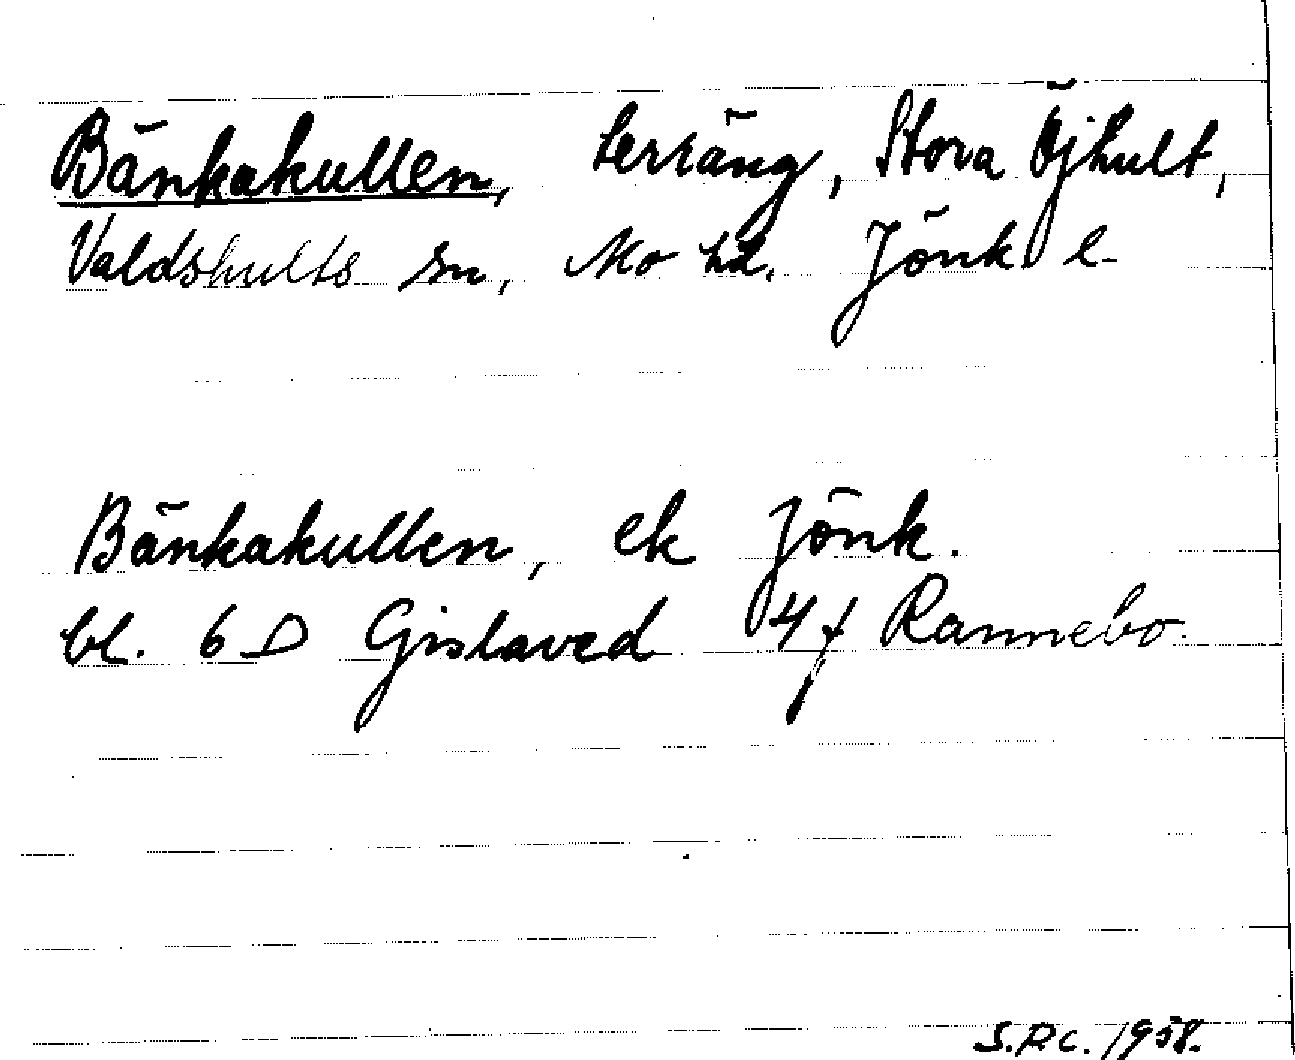 Bänkakullen, terräng, Stora Öjhult,
Valdshults sn, Mo hd. Jönk l
Bänkakullen, ek Jönk.
bl. 6 D Gislaved 4f Rannebo.
S.D.C. 1958.